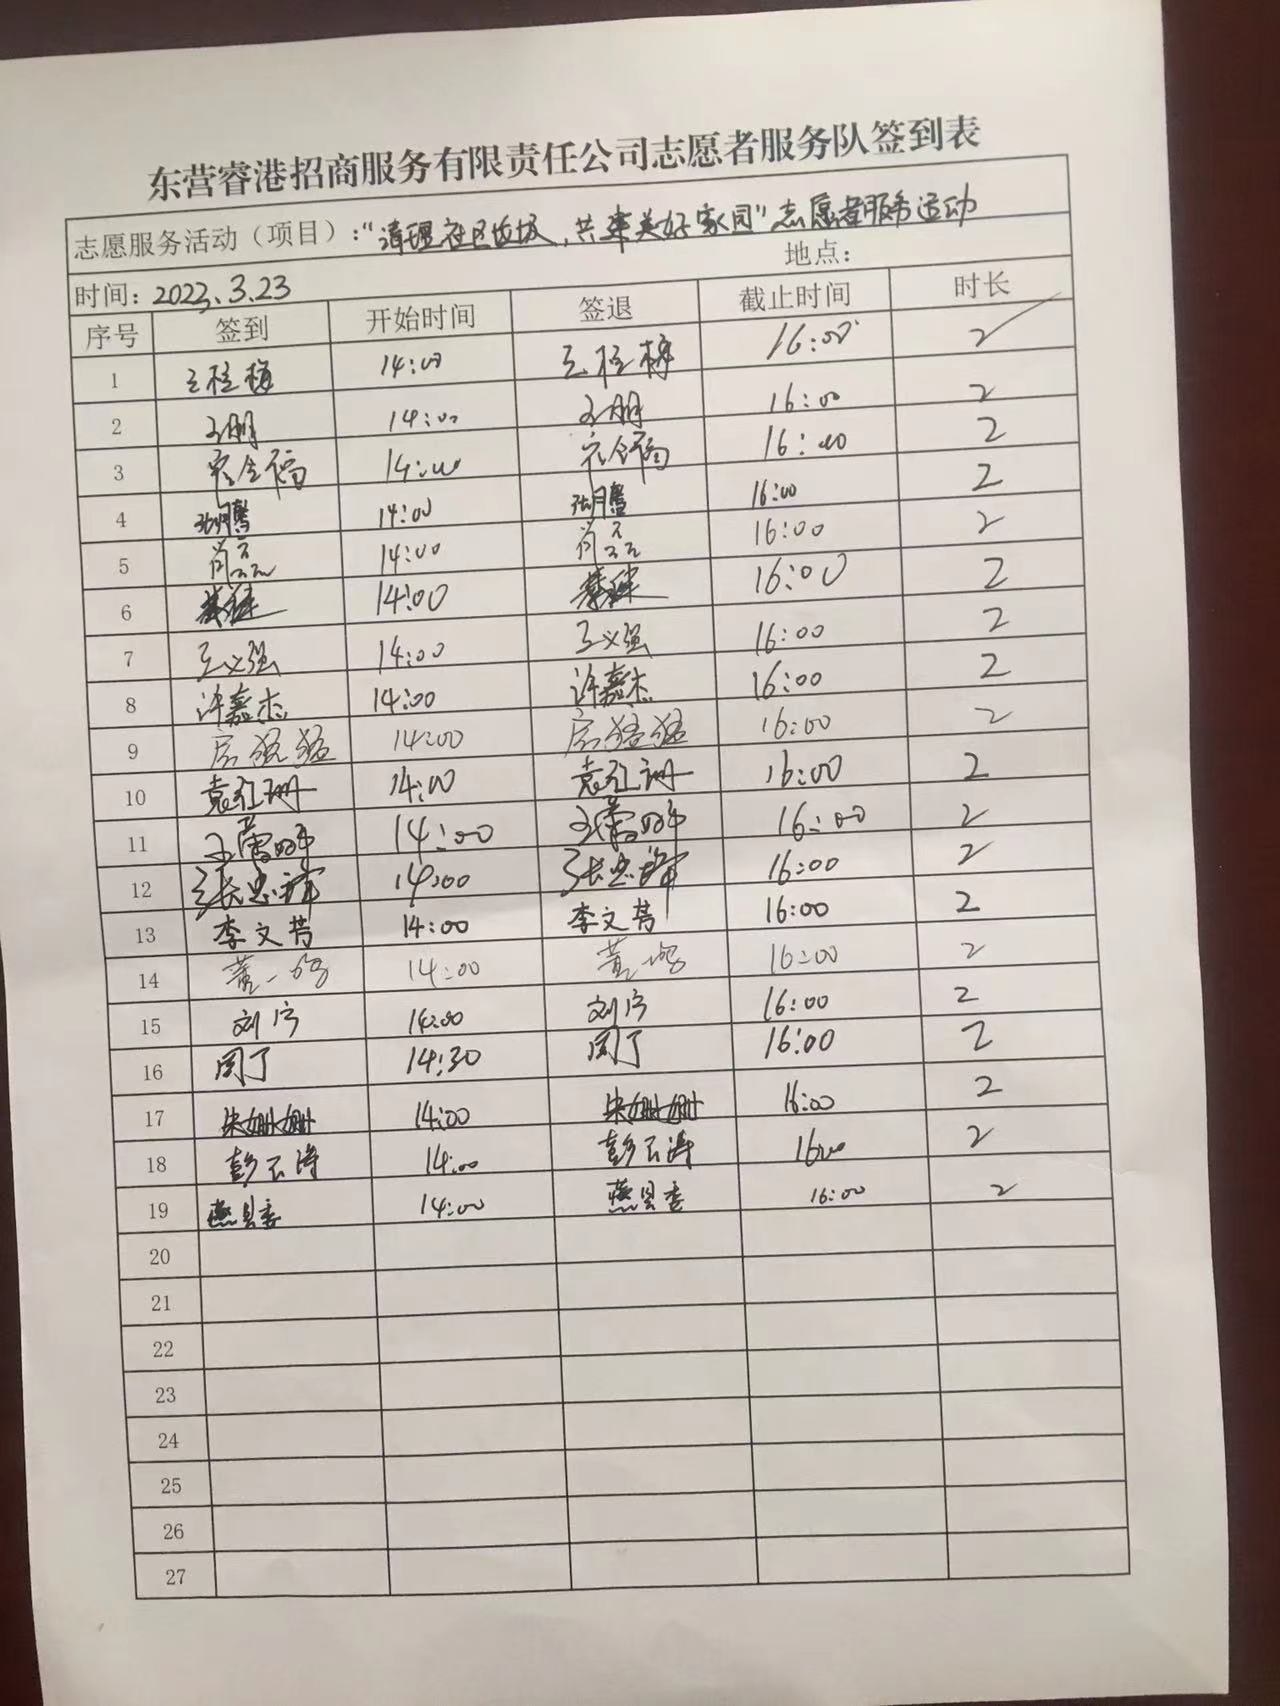 东营睿港招商服务有限责任公司志愿者服务队签到表
志愿服务活动（项目）：“清理社区垃圾，共建美好家园”志愿者服务运动
时间：2022.3.23 地点：
序号 签到 开始时间 签退 截止时间 时长
1 王桂梅 14:00 王桂梅 16:00 2
2 王朋 14:00 王朋 16:00 2
3 宋全福 14:00 宋全福 16:00 2
4 14:00 16:00 2
5 肖云云 14:00 肖云云 16:00 2
6 14:00 16:00 2
7 王义强 14:00 王义强 16:00 2
8 许嘉杰 14:00 许嘉杰 16:00 2
9 房猛猛 14:00 房猛猛 16:00 2
10 袁红珊 14:00 袁红珊 16:00 2
11 14:00 16:00 2
12 张忠 14:00 张忠 16:00 2
13 李文芳 14:00 李文芳 16:00 2
14 董一 14:00 董一 16:00 2
15 刘宁 14:00 刘宁 16:00 2
16 闫丁 14:30 闫丁 16:00 2
17 朱姗姗 14:00 朱姗姗 16:00 2
18 彭云涛 14:00 彭云涛 16:00 2
19 燕 14:00 燕 16:00 2
20
21
22
23
24
25
26
27